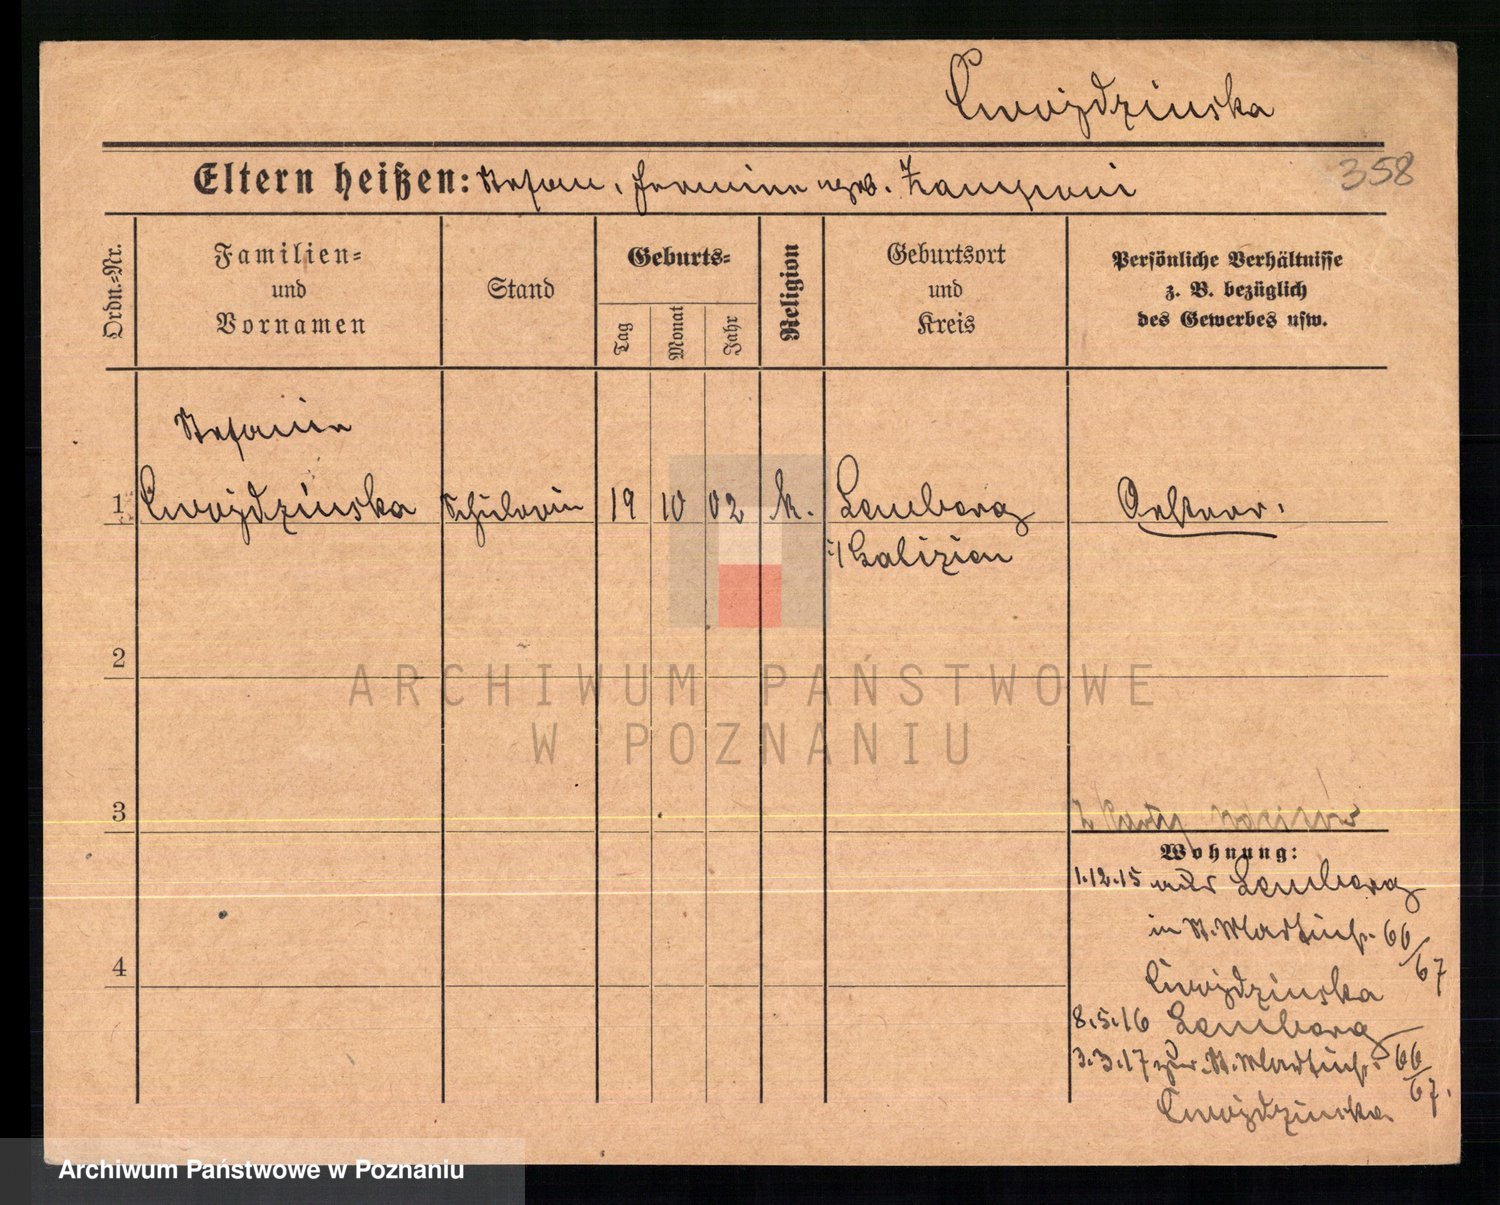 Cwojdzinska
358
Eltern heißen: Stefan, Hermine geb. Zampioni
Ordn.-Nr.
Familien-
und
Vornamen
Stand
Geburts-
Tag
Monat
Jahr
Religion
Geburtsort
und
Kreis
Persönliche Verhältnisse
z. B. bezüglich
des Gewerbes usw.
Stefanie
1 Cwojdzinska Schülerin 19 10 02 k. Lemberg
i/Galizien
2
ARCHIWUM PAŃSTWOWE
W POZNANIU
3
Z Karty
Wohnung:
1.12.15 aus Lemberg
in St. Martinstr. 66/67
Cwojdzinska
4
8.5.16 Lemberg
3.3.17 zur. St. Martinstr. 66/67.
Cwojdzinska
Archiwum Państwowe w Poznaniu